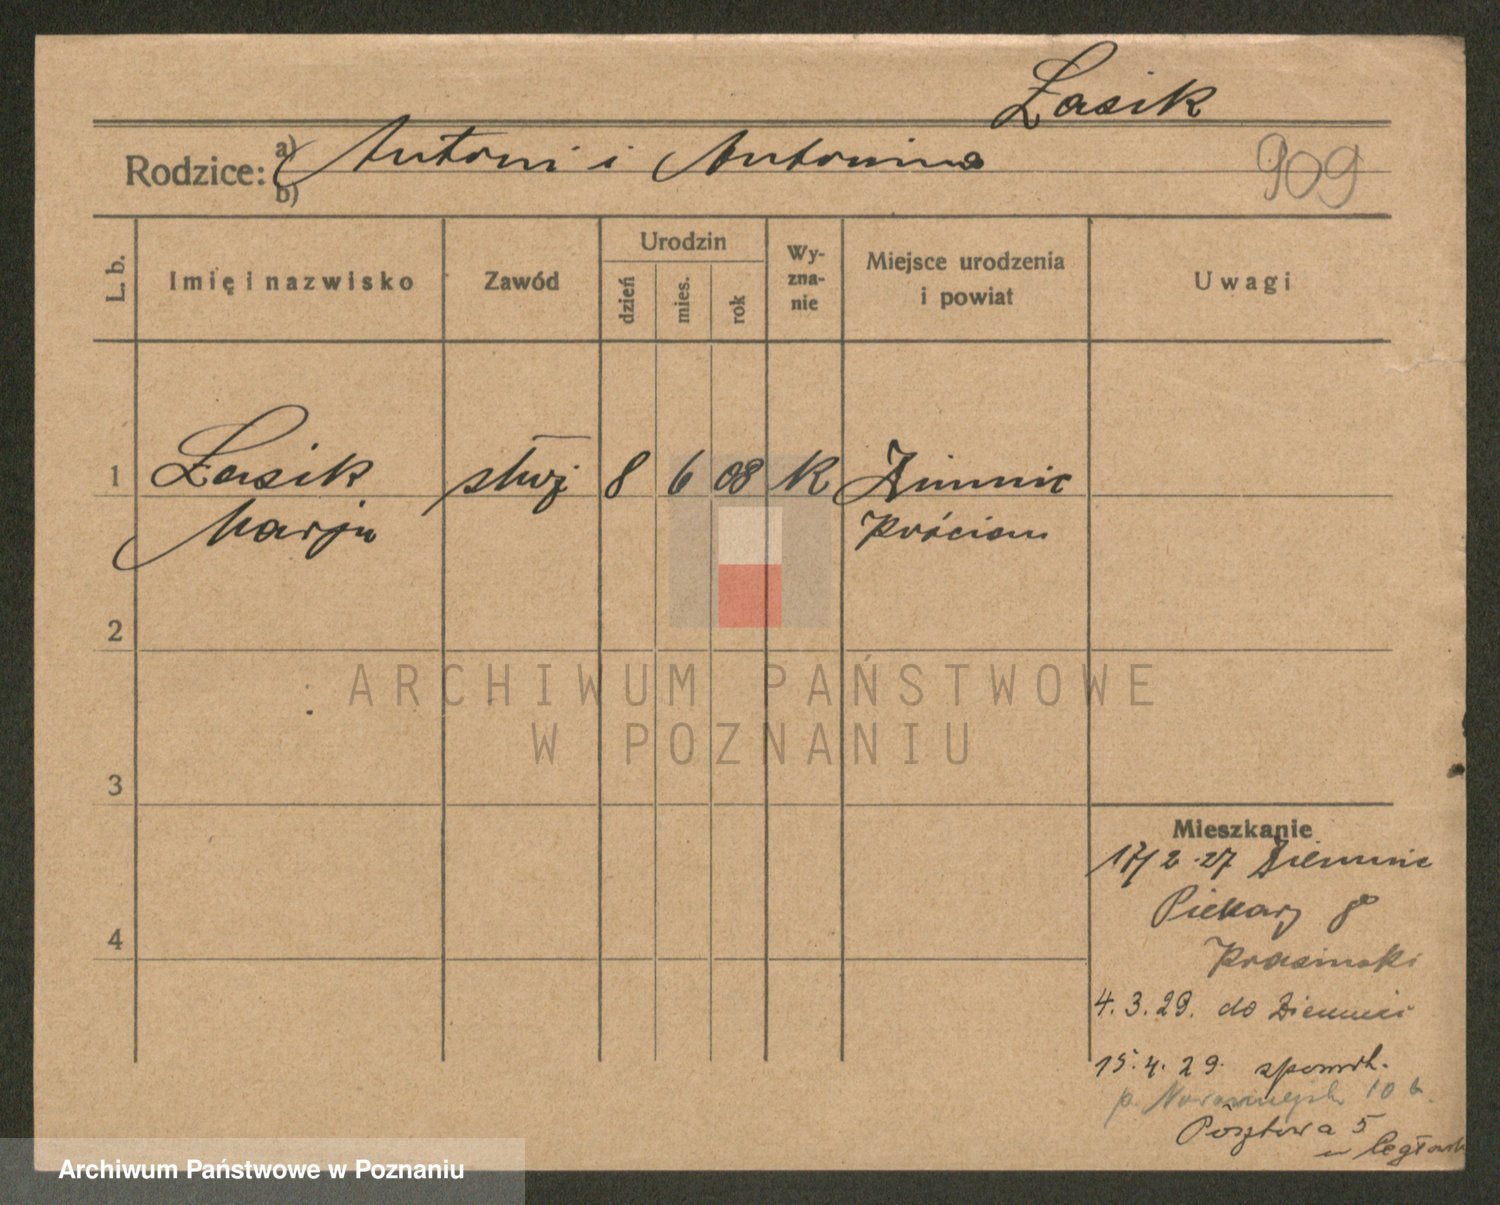 Łasik
Rodzice: a) Antoni i Antonina
b)
909
L. b.
Imię i nazwisko
Zawód
Urodzin
dzień
mies.
rok
Wy-
zna-
nie
Miejsce urodzenia
i powiat
Uwagi
1 Łasik służ 8 6 08 K Ziemnic
Marja Kościan
2
3
4
Mieszkanie
17/2.27 Ziemnic
Piekary 8
Krasinski
4.3.29. do Ziemnic
15.4.29. spowrt.
p. 10
Pósztowa 5
u
ARCHIWUM PAŃSTWOWE
W POZNANIU
Archiwum Państwowe w Poznaniu